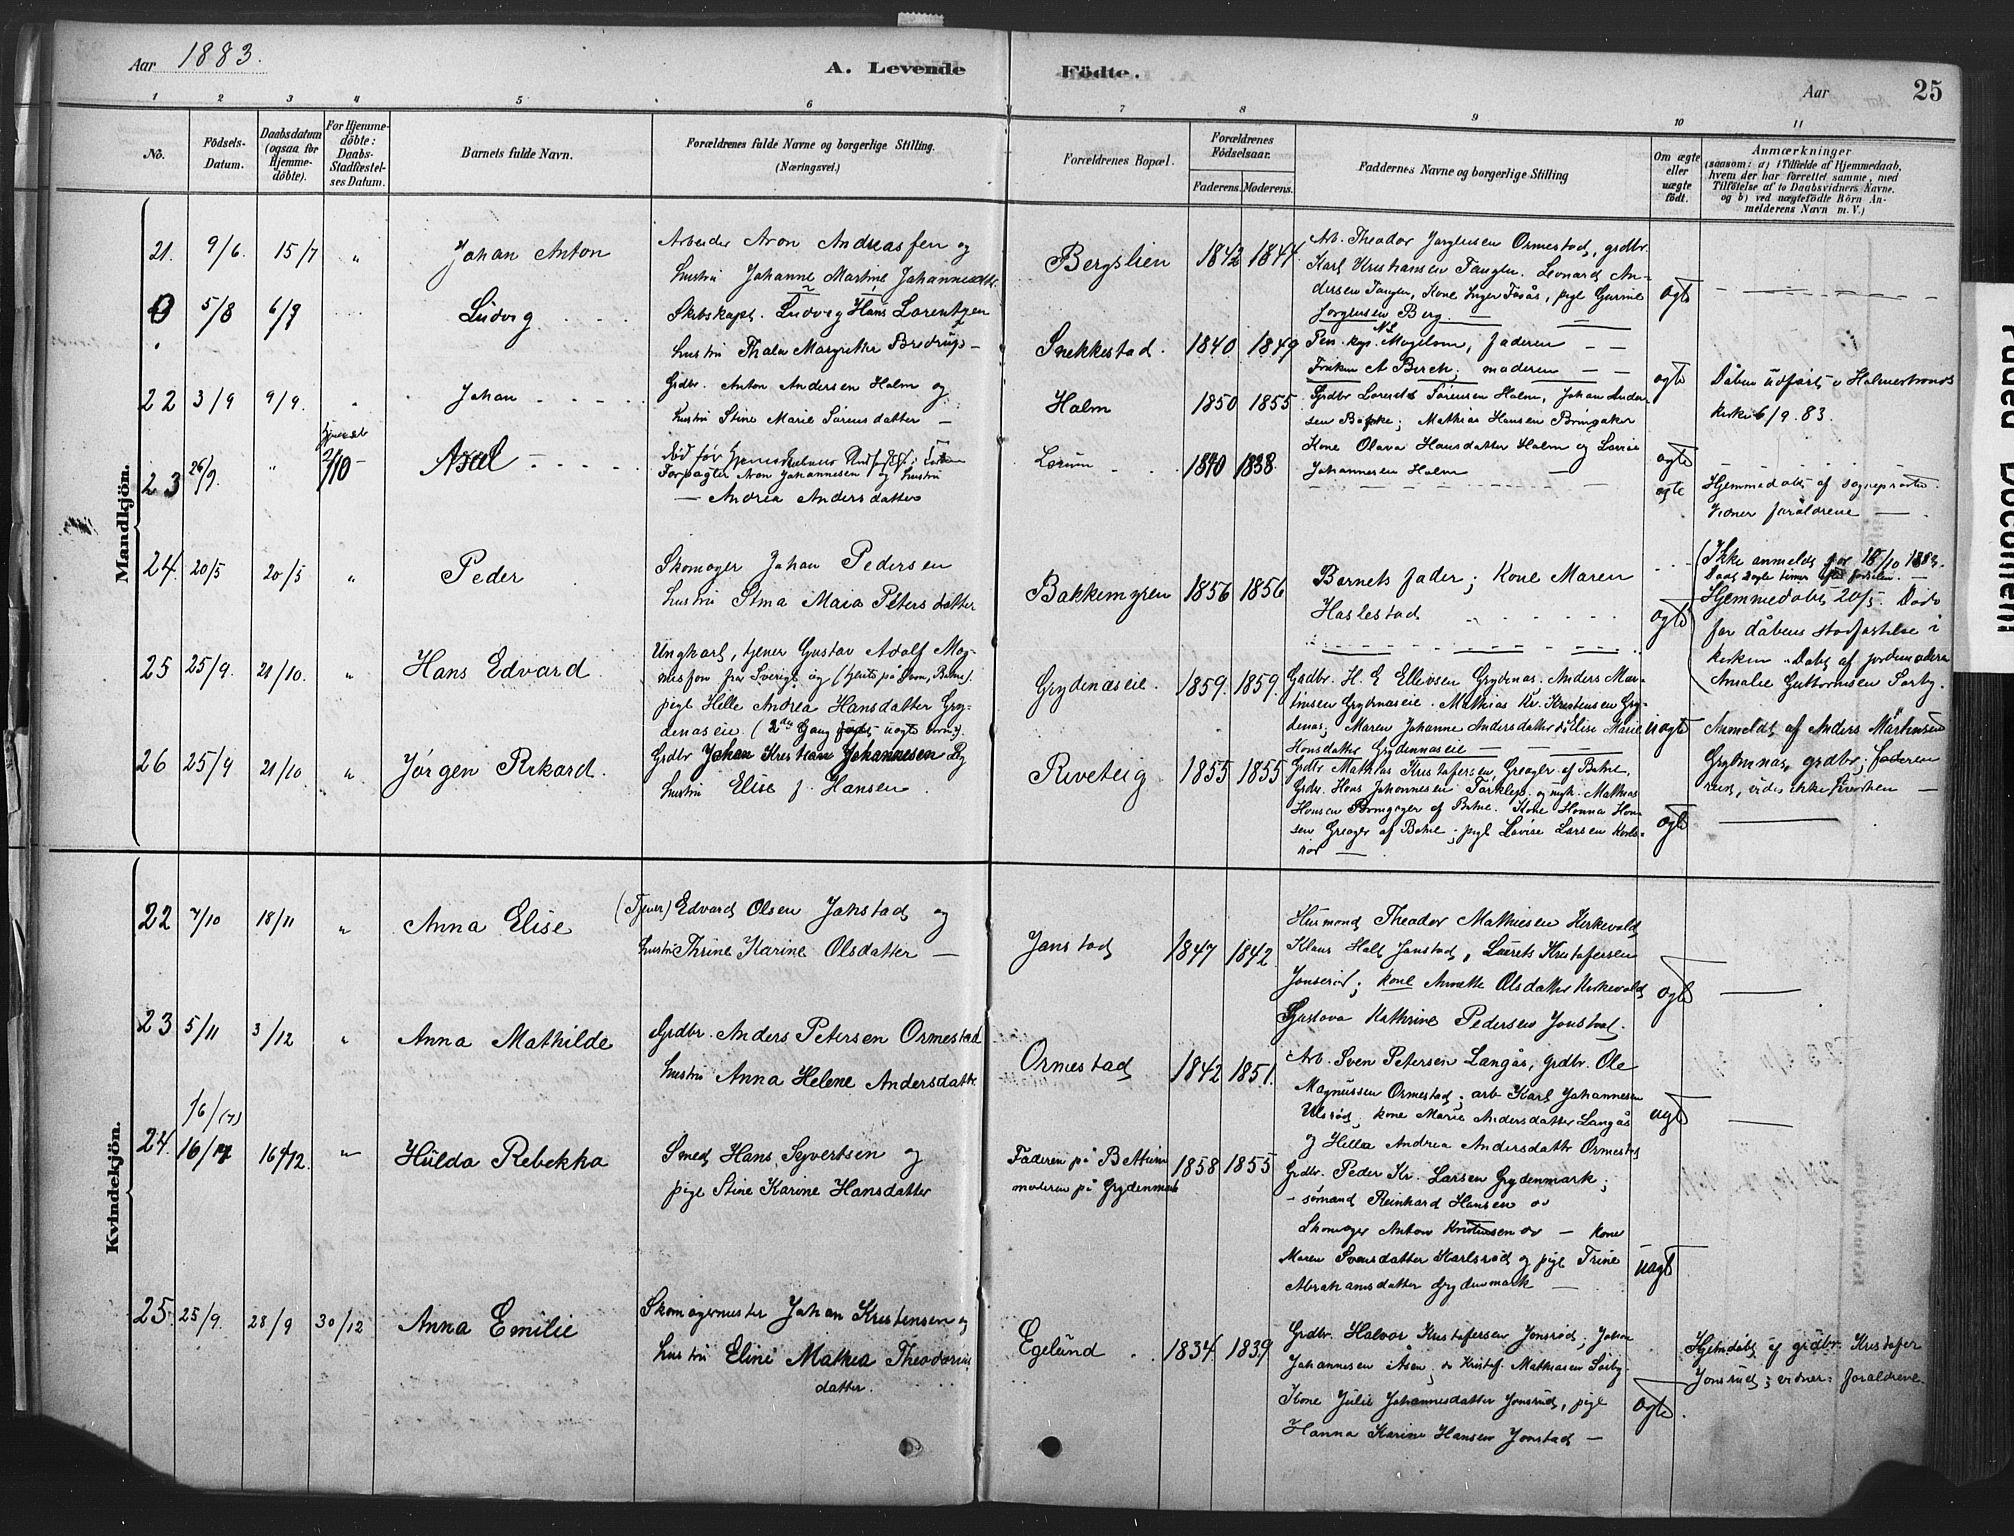 Aar 1883. A. Levende Födte. Aar 25
1 2 3 4 5 6 7 8 9 10 11
No.
Födsels-Datum.
Daabsdatum (ogsaa for Hjemme-döbte).
For Hjemme-döbte: Daabs-Stadfæstel-ses Datum.
Barnets fulde Navn.
Forældrenes fulde Navne og borgerlige Stilling. (Næringsvei.)
Forældrenes Bopæl.
Forældrenes Födselsaar.
Faderens. Moderens.
Faddernes Navne og borgerlige Stilling
Om ægte eller uægte födt.
Anmærkninger
(saasom: a) i Tilfælde af Hjemmedaab, hvem der har forrettet samme, med Tilföielse af to Daabsvidners Navne. og b) ved uægtefödte Börn An-melderens Navn m. V.)
Mandkjön.
21. 9/6 15/7 " Johan Anton
Arbeider Aron Andreassen og
hustru Johanne Martine Johannesdtr.
Bergslien 1842 1844
Arb. Theodor Jørgensen Ormestad, grdbr.
Karl Kristiansen Tangen. Leonard An-
dersen Tangen, Kone Inger Fosås, pige Gurine
Jørgensen Berg.
ægte
0 5/8 6/9 Ludvig
Skibskapt. Ludvig Hans Lorentzen
hustru Thala Margrethe Bredrup
Snekkestad. 1840 1849
Faderen
Frøken A Birch; moderen
ægte
Dåben udført i Holmestrands
kirke 6/9. 83.
22 3/9 9/9. Johan
Grdbr. Anton Andersen Holm og
hustru Stine Marie Sørensdatter
Holm 1850 1855
Grdbr Lorents Sørensen Holm, Johan Ander-
sen Bakke; Mathias Hansen Bringaker
Kone Olava Hansdatter Holm og Lovise
Johannesen Holm
ægte
23 26/9. " 2/10 Axel
Forpagter Aron Johannesen og hustru
Andrea Andersdatter
Lørum 1840 1838.
ægte
Hjemmedøbt af sognepresten.
Vidner forældrene
24. 20/5 20/5 " Peder
Skomager Johan Pedersen
hustru Stina Maia Petersdatter
Bakkemyren 1856 1856
Barnets fader; Kone Maren
Haslestad
ægte
Ikke anmeldt før 18/10 1883.
Hjemmedøbt 20/5. Døde
før dåbens stadfæstelse i
kirken. Døbt af jordemoderen
Amalie Guttormsen Sørby.
25 25/9. 21/10. " Hans Edvard
Ungkarl, tjener Gustav Adolf Mag-
nusson fra Sverige og
pige Helle Andrea Hansdatter Gry-
denæseie. (2den Gang uægte børn).
Grydenæseie. 1859. 1859.
Gsdbr. H. E Ellevsen Grydenæs. Anders Mar-
tinsen Grydenæseie. Mathias Kr. Kristensen Gry-
denæs; Maren Johanne Andersdatter Elise Marie
Hansdatter Grydenæseie
uægte
Anmeldt af Anders Martinsen
Grydenæs, grdbr; faderen
26 25/9 21/10 " Jørgen Rikard.
Grdbr Johan Kristian Johannesen og
hustru Elise f. Hansen.
Riveteig 1855 1855
Grdbr Mathias Kristofersen, Greager af Botne,
Grdbr. Hans Johannesen
Hansen Bringager af Botne. Kone Hanna Han-
sen Greager af Botne; pige Lovise Larsen
ægte
Kvindekjön.
22 7/10 18/11 " Anna Elise
(Tjener) Edvard Olsen Jonstad og
hustru Thrine Karine Olsdatter
Jonstad 1847 1842
Husmand Theodor Mathiesen Kirkevold
Klaus Holt Jonstad, Laurets Kristofersen
Jonserød; kone Annette Olsdatter Kirkevold
Gustava Kathrine Pedersen Jonstad.
ægte
23 5/11 3/12 " Anna Mathilde
Grdbr. Anders Petersen Ormestad
hustru Anna Helene Andersdatter
Ormestad 1842 1851.
Arb. Sven Petersen Langås, grdbr. Ole
Magnussen Ormestad, arb Karl Johannesen
Ulsrød, kone Marie Andersdatter Langås
og Hella Andrea Andersdatter Ormestad
ægte
16/(7)
24. 16/7 16/12. " Hulda Rebekka
Smed Hans Syvertsen og
pige Stine Karine Hansdatter
Faderen på Bettum
moderen på Grydenmark
1858 1855
Grdbr. Peder Kr. Larsen Grydenmark;
sømand Reinhard Hansen do
Skomager Anton Kristensen do – kone
Maren Svensdatter Karlsrød og pige Trine
Abrahamsdatter Grydenmark
uægte
25. 25/9. 28/9 30/12 Anna Emilie
Skomagermester Johan Kristensen og
hustru Eline Mathea Theodorius
datter.
Egelund 1834. 1839
Grdbr. Halvor Kristofersen Jonsrød; Johan
Johannesen Åsen; do Kristof. Mathiasen Sørby
Kone Julie Johannesdatter Jonsrud, pige
Hanna Karine Hansen Jonstad
ægte.
Hjemdøbt af grdbr. Kristofer
Jonsrud; vidner: forældrene.